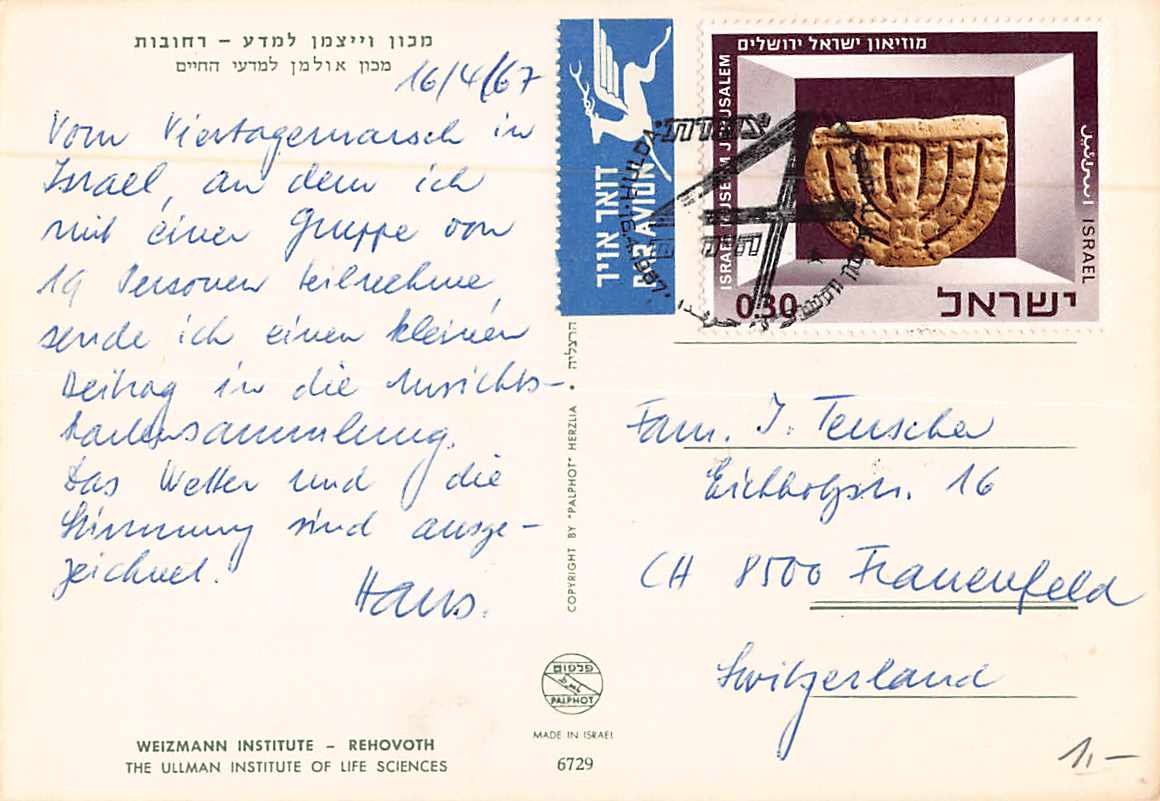 מכון וייצמן למדע – רחובות
מכון אולמן למדעי החיים
16/4/67
Vom Viertagemarsch in
Israel, an dem ich
mit einer Gruppe von
19 Personen teilnehme,
sende ich einen kleinen
Beitrag in die Ansichts-
kartensammlung.
Das Wetter und die
Stimmung sind ausge-
zeichnet.
Hans.
WEIZMANN INSTITUTE – REHOVOTH
THE ULLMAN INSTITUTE OF LIFE SCIENCES
דואר אויר
PAR AVION
מוזיאון ישראל ירושלים
ISRAEL MUSEUM JERUSALEM
اسرائيل
ISRAEL
0.30
ישראל
צעדת
HULDA
הרצליה
COPYRIGHT BY "PALPHOT" HERZLIA
פלפוט
PALPHOT
MADE IN ISRAEL
6729
Fam. J. Teuscher
Eichholzstr. 16
CH 8500 Frauenfeld
Switzerland
1,–